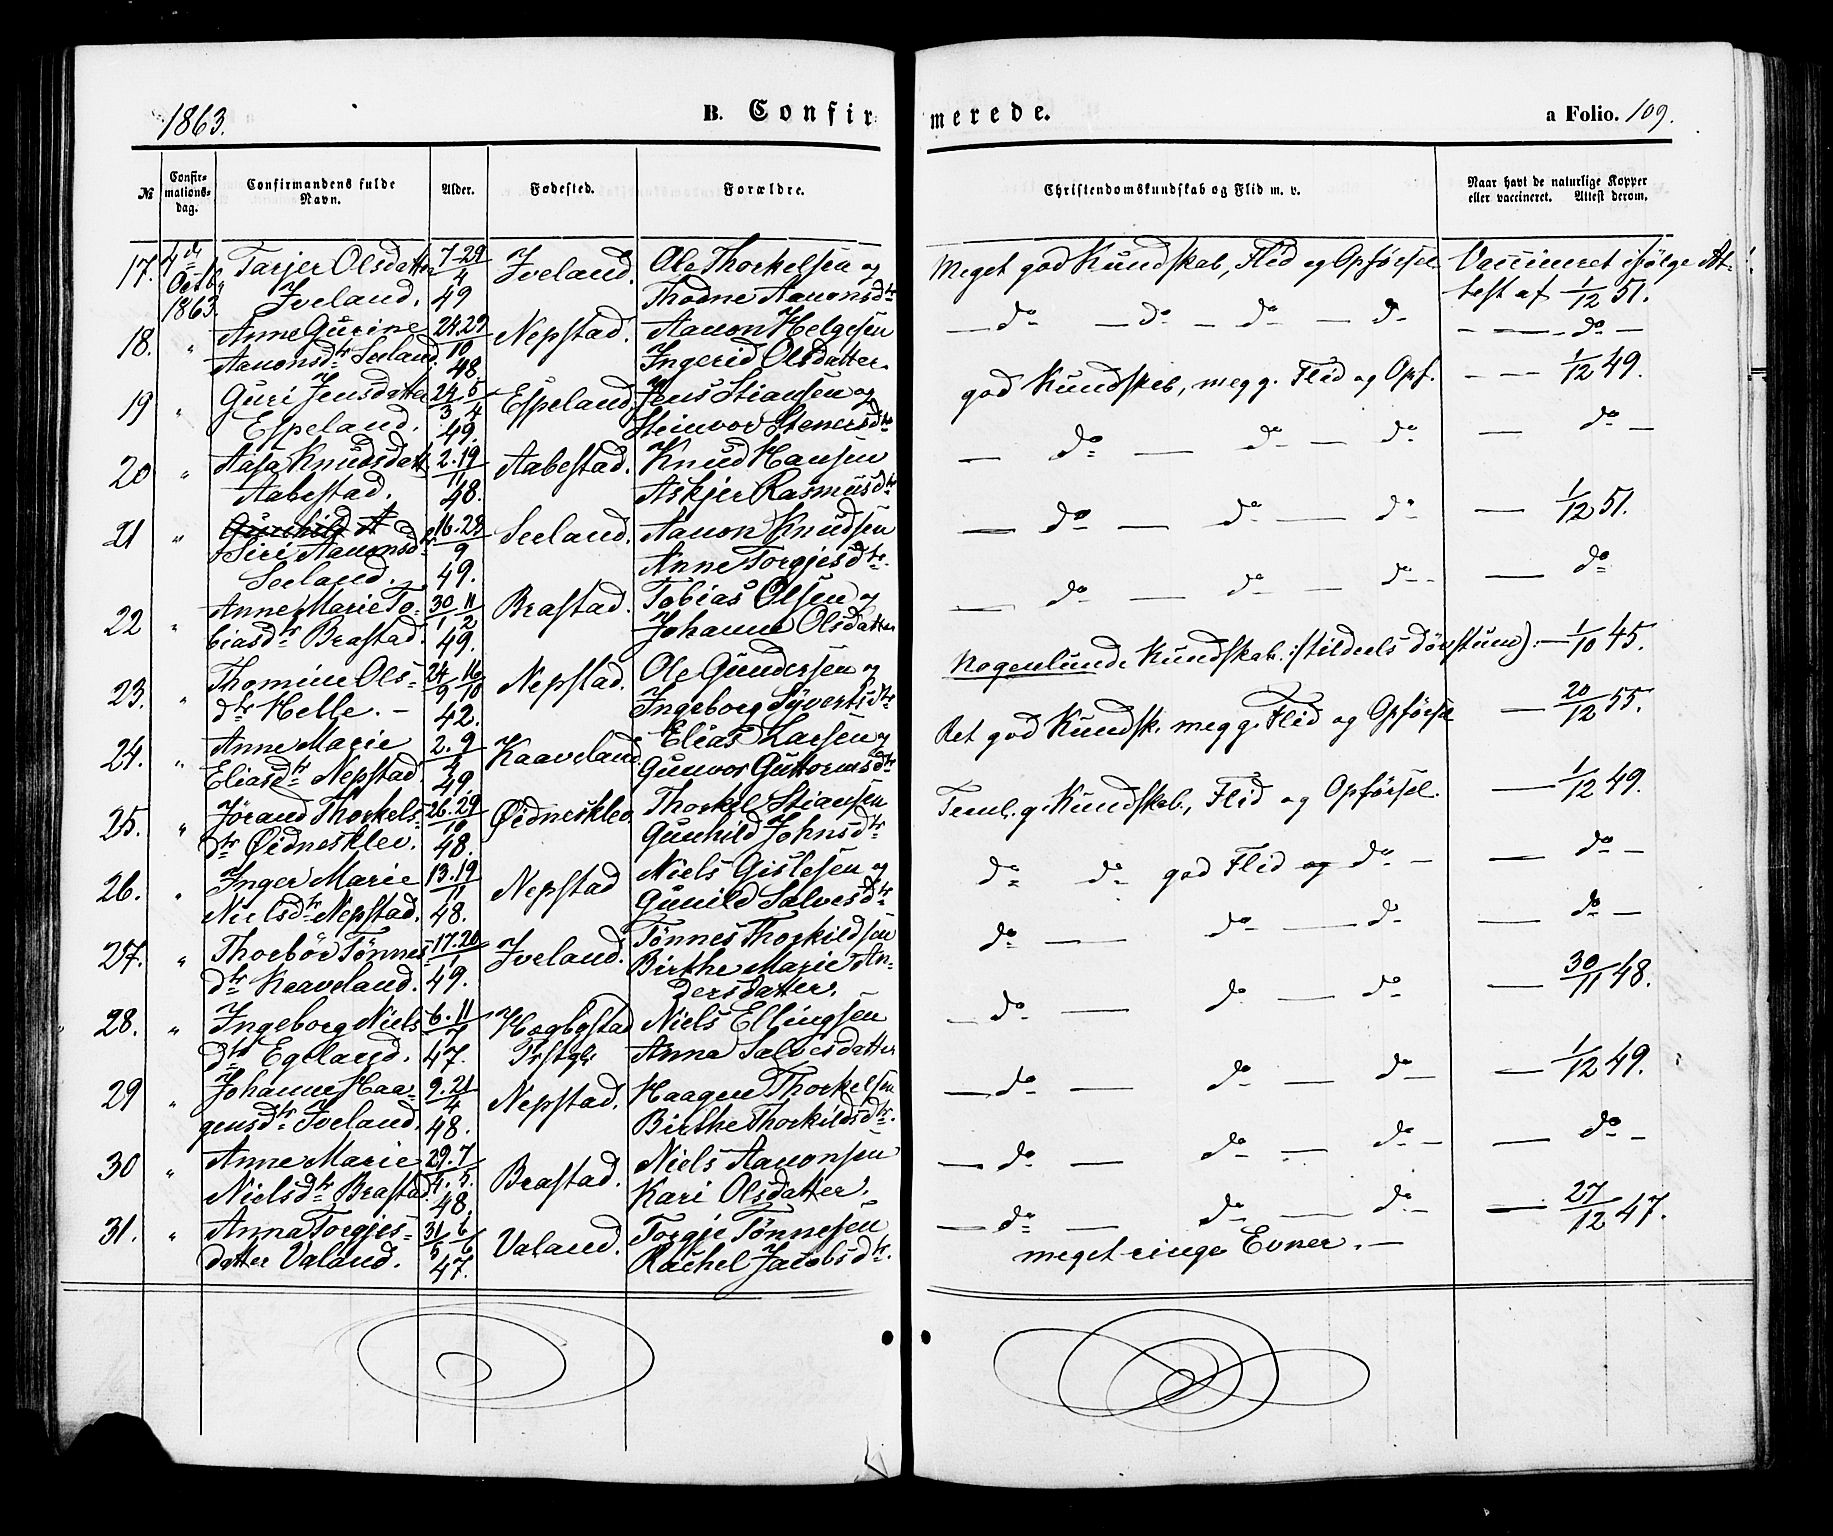 1863.
B. Confirmerede.
a Folio. 109.
№
Confirmations-dag.
Confirmandens fulde Navn.
Alder.
Fødested.
Forældre.
Christendomskundskab og Flid m. v.
Naar havt de naturlige Kopper eller vaccineret. Attest derom.
17. 4de Octb. 1863. Tarjer Olsdatter 7-29/4 49 Iveland. Ole Thorkelsen og Meget god Kundskab, Flid og Opførsel Vaccineret ifølge At-
Iveland. Thodne Aanonsdtr test af 1/12 51.
18. " Anne Gurine 24.29/10 48 Nepstad. Aanon Helgesen — do — do — do — do — — do —
Aanonsdtr Seeland. Ingerid Olsdatter.
19 " Guri Jensdatter 24/3 5/4 49. Espeland. Jens Stiansen og god Kundskab, meg g. Flid og Opf. — — 1/12 49.
Espeland. Steinvor Stenersdtr
20 " Aasa Knudsdatt 2.19/11 48. Aabestad. Knud Hansen — do — do — do — do —
Aabestad. Askjer Rasmusdtr
21 " Gunhild A
Siri Aanonsd. 16.28/9 49. Seeland. Aanon Knudsen — do — do — do — 1/12 51.
Seeland. Anne Torgjesdtr.
22 " Anne Marie To- 30/1 11/2 49. Brastad. Tobias Olsen og — do — do — do — — do
biasdtr Brastad. Johanne Olsdatter
23. " Thomine Ols- 24/9 16/10 42. Nepstad. Ole Gundersen og Nogenlunde Kundskab. :/tildeels døvstum). — 1/10 45.
dtr Helle. — Ingeborg Syvertsdtr
24. " Anne Marie 2.9/4 49. Kaaveland. Elias Larsen og Ret god Kundsk. meg g. Flid og Opførsel — 20/12 55.
Eliasdtr Nepstad. Gunvor Guttormsdtr
25. " Jørand Thorkels- 26.29/10 48. Øidnesklev Thorkel Stiansen Teml. g. Kundskab., Flid og Opførsel. — 1/12 49.
dtr Øidnesklev. Gunhild Johnsdtr
26. " Inger Marie 13.19/11 48. Nepstad Niels Gislesen og do do god Flid og do — — do —
Nielsdtr Nepstad. Gunild Salvesdtr
27. " Thorbør Tønnes- 17.20/1 49. Iveland. Tønnes Thorkildsen do — do — do — — do —
dtr Kaaveland. Birthe Marie An-
dersdatter.
28. " Ingeborg Niels 6.11/7 47. Hægbøstad Niels Ellingsen — do — do — do — 30/11 48.
dtr Egeland. Prstgl: Anna Salvesdatter
29 " Johanne Haa- 9.21/4 48. Nepstad. Haagen Thorkelsen — do — do — do — — 1/12 49.
gensdtr Iveland. Birthe Thorkildsdtr.
30 " Anne Marie 29.7/4.5. 48. Brastad. Niels Aanonsen — do — do — do — — do —
Nielsdtr Brastad. Kari Olsdatter.
31. " Anna Torgjes- 31/5 6/6 47. Valand. Torgje Tønnesen — do — do — do — — 27/12 47.
datter Valand. Rachel Jacobsdtr. meget ringe Evner. —